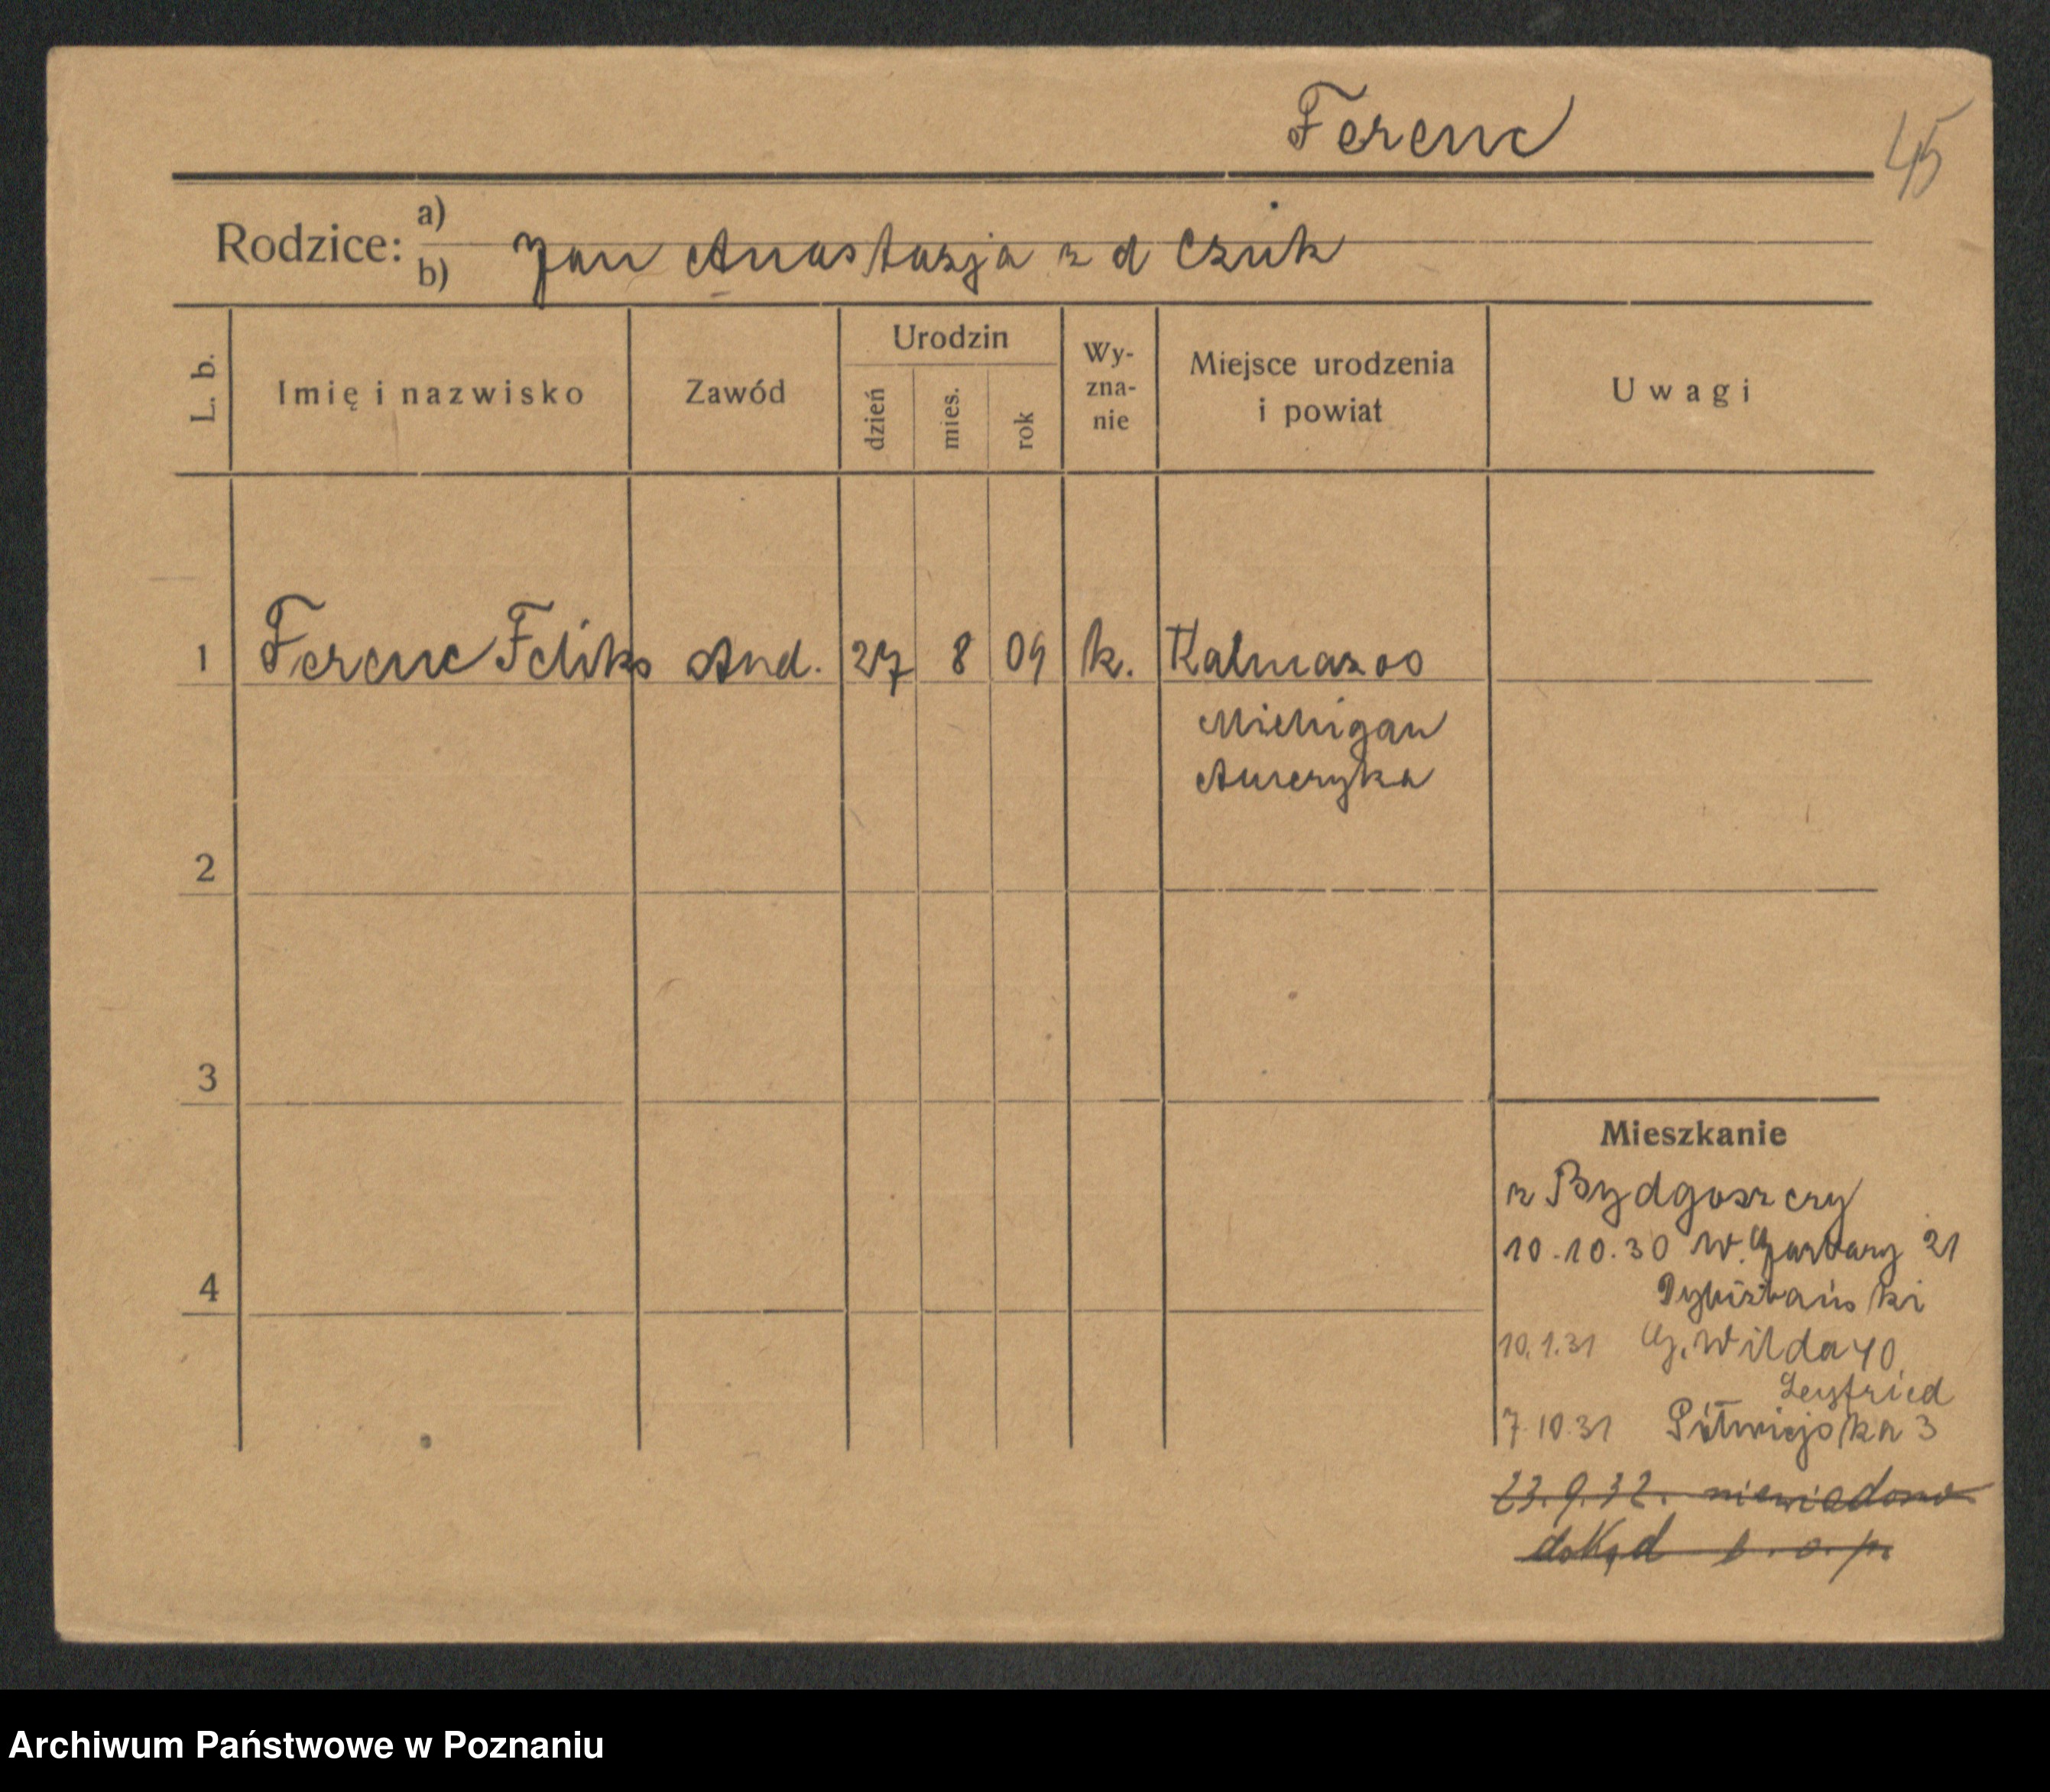 Ferenc
45
Rodzice: a)
b) Jan Anastazja z d Czuk
L. b.
Imię i nazwisko
Zawód
Urodzin
dzień
mies.
rok
Wy-
zna-
nie
Miejsce urodzenia
i powiat
Uwagi
1 Ferenc Feliks stud. 27 8 09 k. Kalmazoo
Michigan
Ameryka
2
3
Mieszkanie
z Bydgoszczy
10.10.30 W. Garbary 21
4
10.1.31 G. Wilda 40
Seyfried
7.10.31 Półwiejska 3
23.9.32. niewiadomo
dokąd b.o.p.
Archiwum Państwowe w Poznaniu